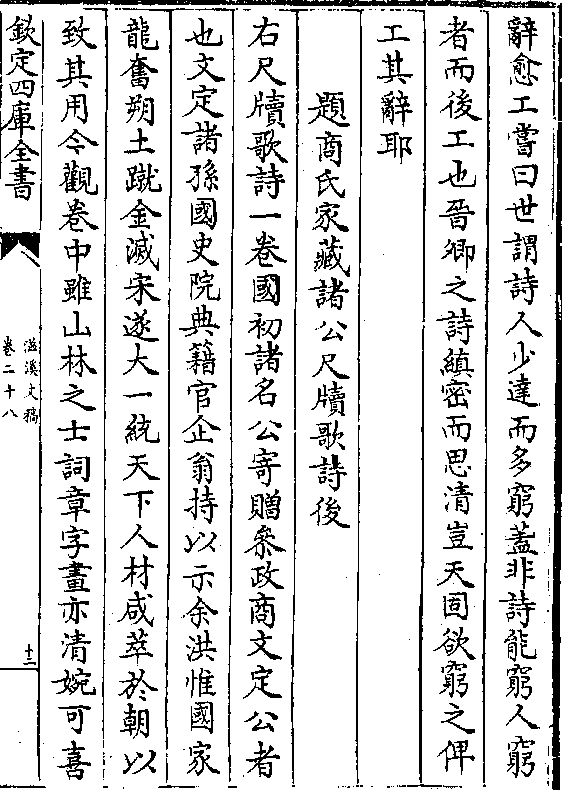 辭愈工嘗曰世謂詩人少達而多窮蓋非詩能窮人窮
者而後工也晉卿之詩縝密而思清豈天固欲窮之俾
工其辭耶
題商氏家藏諸公尺牘歌詩後
右尺牘歌詩一卷國初諸名公寄贈叅政商文定公者
也文定諸孫國史院典籍官企翁持以示余洪惟國家
龍奮朔土蹴金滅宋遂大一統天下人材咸萃於朝以
致其用今觀卷中雖山林之士詞章字畫亦清婉可喜
欽定四庫全書
滋溪文稿
卷二十八
十三